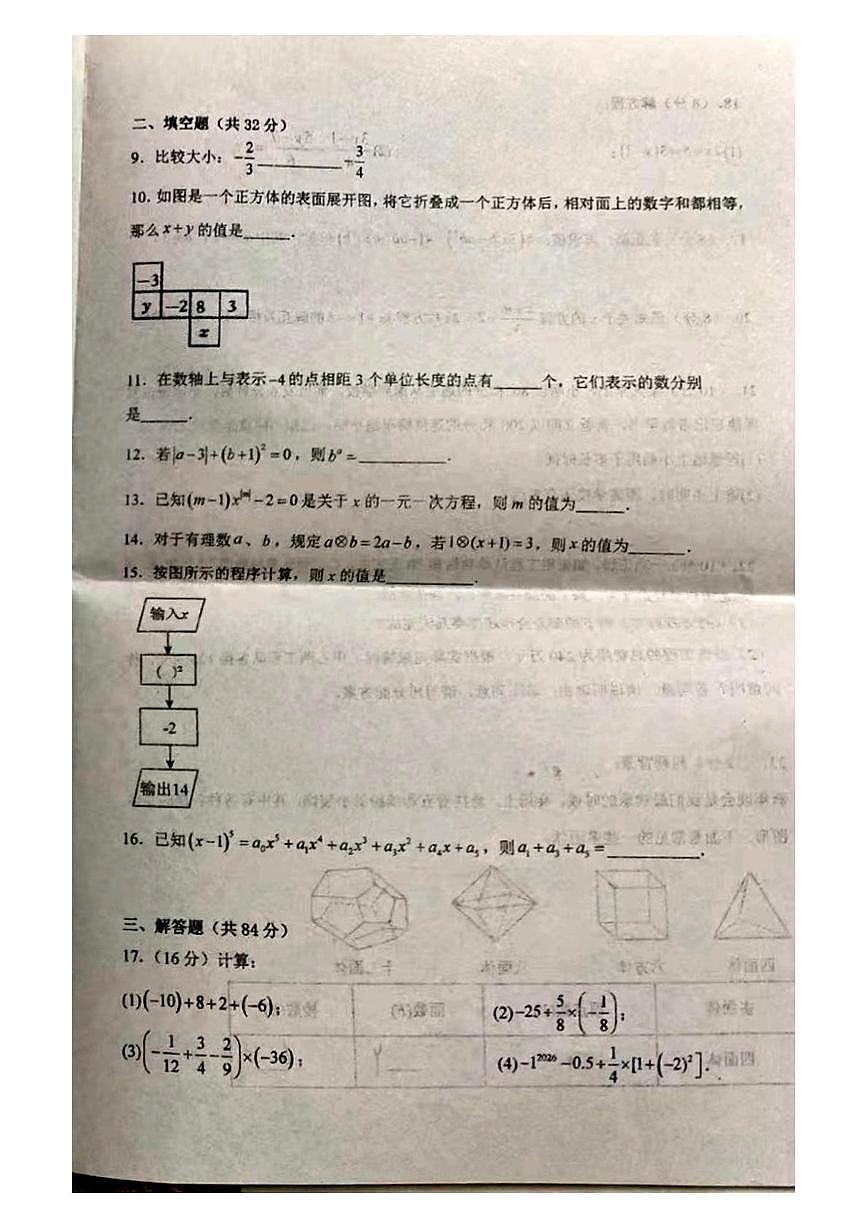 二、填空题（共32分）
9．比较大小：-2/3______-3/4
10．如图是一个正方体的表面展开图，将它折叠成一个正方体后，相对面上的数字和都相等，
那么x+y的值是______．
-3
y -2 8 3
x
11．在数轴上与表示-4的点相距3个单位长度的点有______个，它们表示的数分别
是______．
12．若|a-3|+(b+1)²=0，则bᵃ=__________．
13．已知(m-1)x^|m|-2=0是关于x的一元一次方程，则m的值为______．
14．对于有理数a、b，规定a⊗b=2a-b，若1⊗(x+1)=3，则x的值为______．
15．按图所示的程序计算，则x的值是__________．
输入x
( )²
-2
输出14
16．已知(x-1)⁵=a₀x⁵+a₁x⁴+a₂x³+a₃x²+a₄x+a₅，则a₁+a₃+a₅=__________．
三、解答题（共84分）
17．（16分）计算：
(1)(-10)+8+2+(-6)； (2)-25÷5/8×(-1/8)；
(3)(-1/12+3/4-2/9)×(-36)； (4)-1²⁰²⁶-0.5÷1/4×[1+(-2)²]．